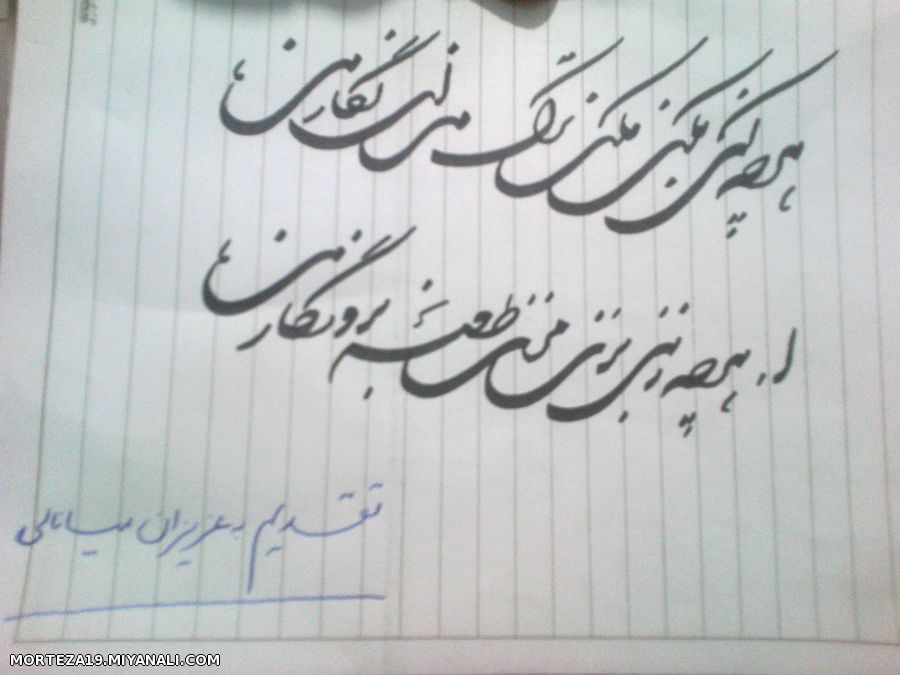 هر چه کنی بکن مکن ترک من ای نگار من
هر چه زنی بزن مزن طعنه به روزگار من
تقدیم به عزیزان میانالی
MORTEZA19.MIYANALI.COM